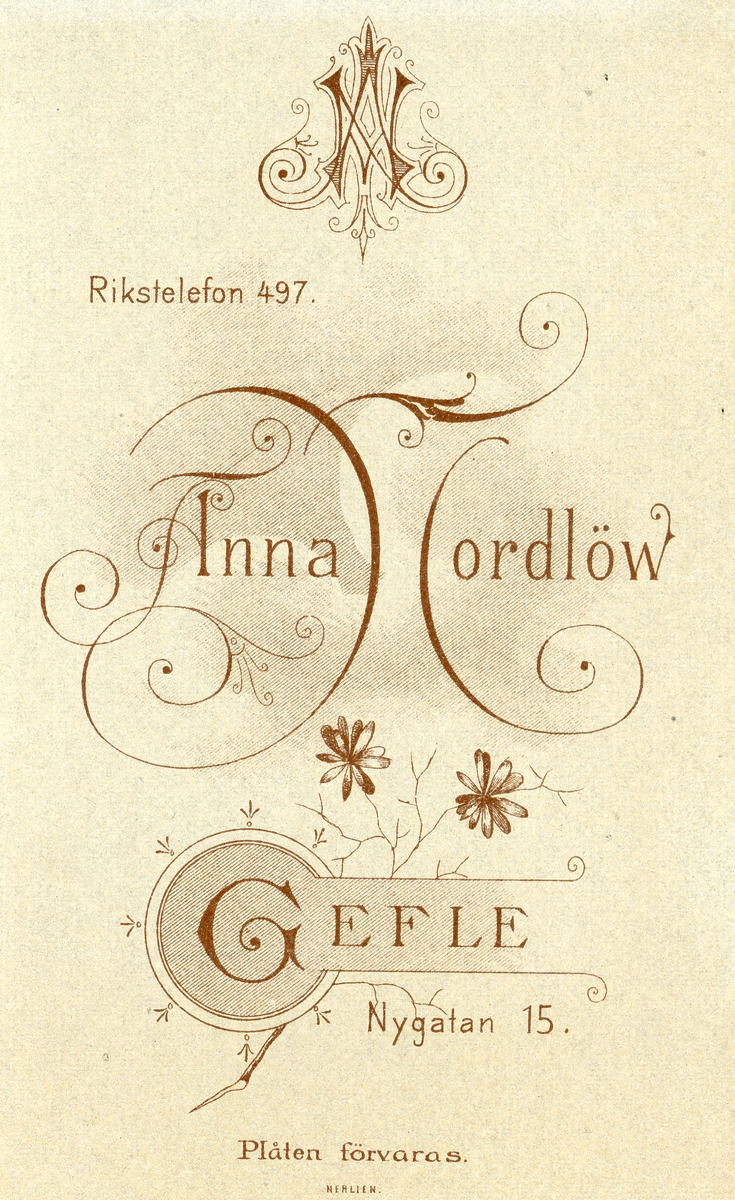 AN
Rikstelefon 497.
Anna Nordlöw
GEFLE
Nygatan 15.
Plåten förvaras.
NERLIEN.